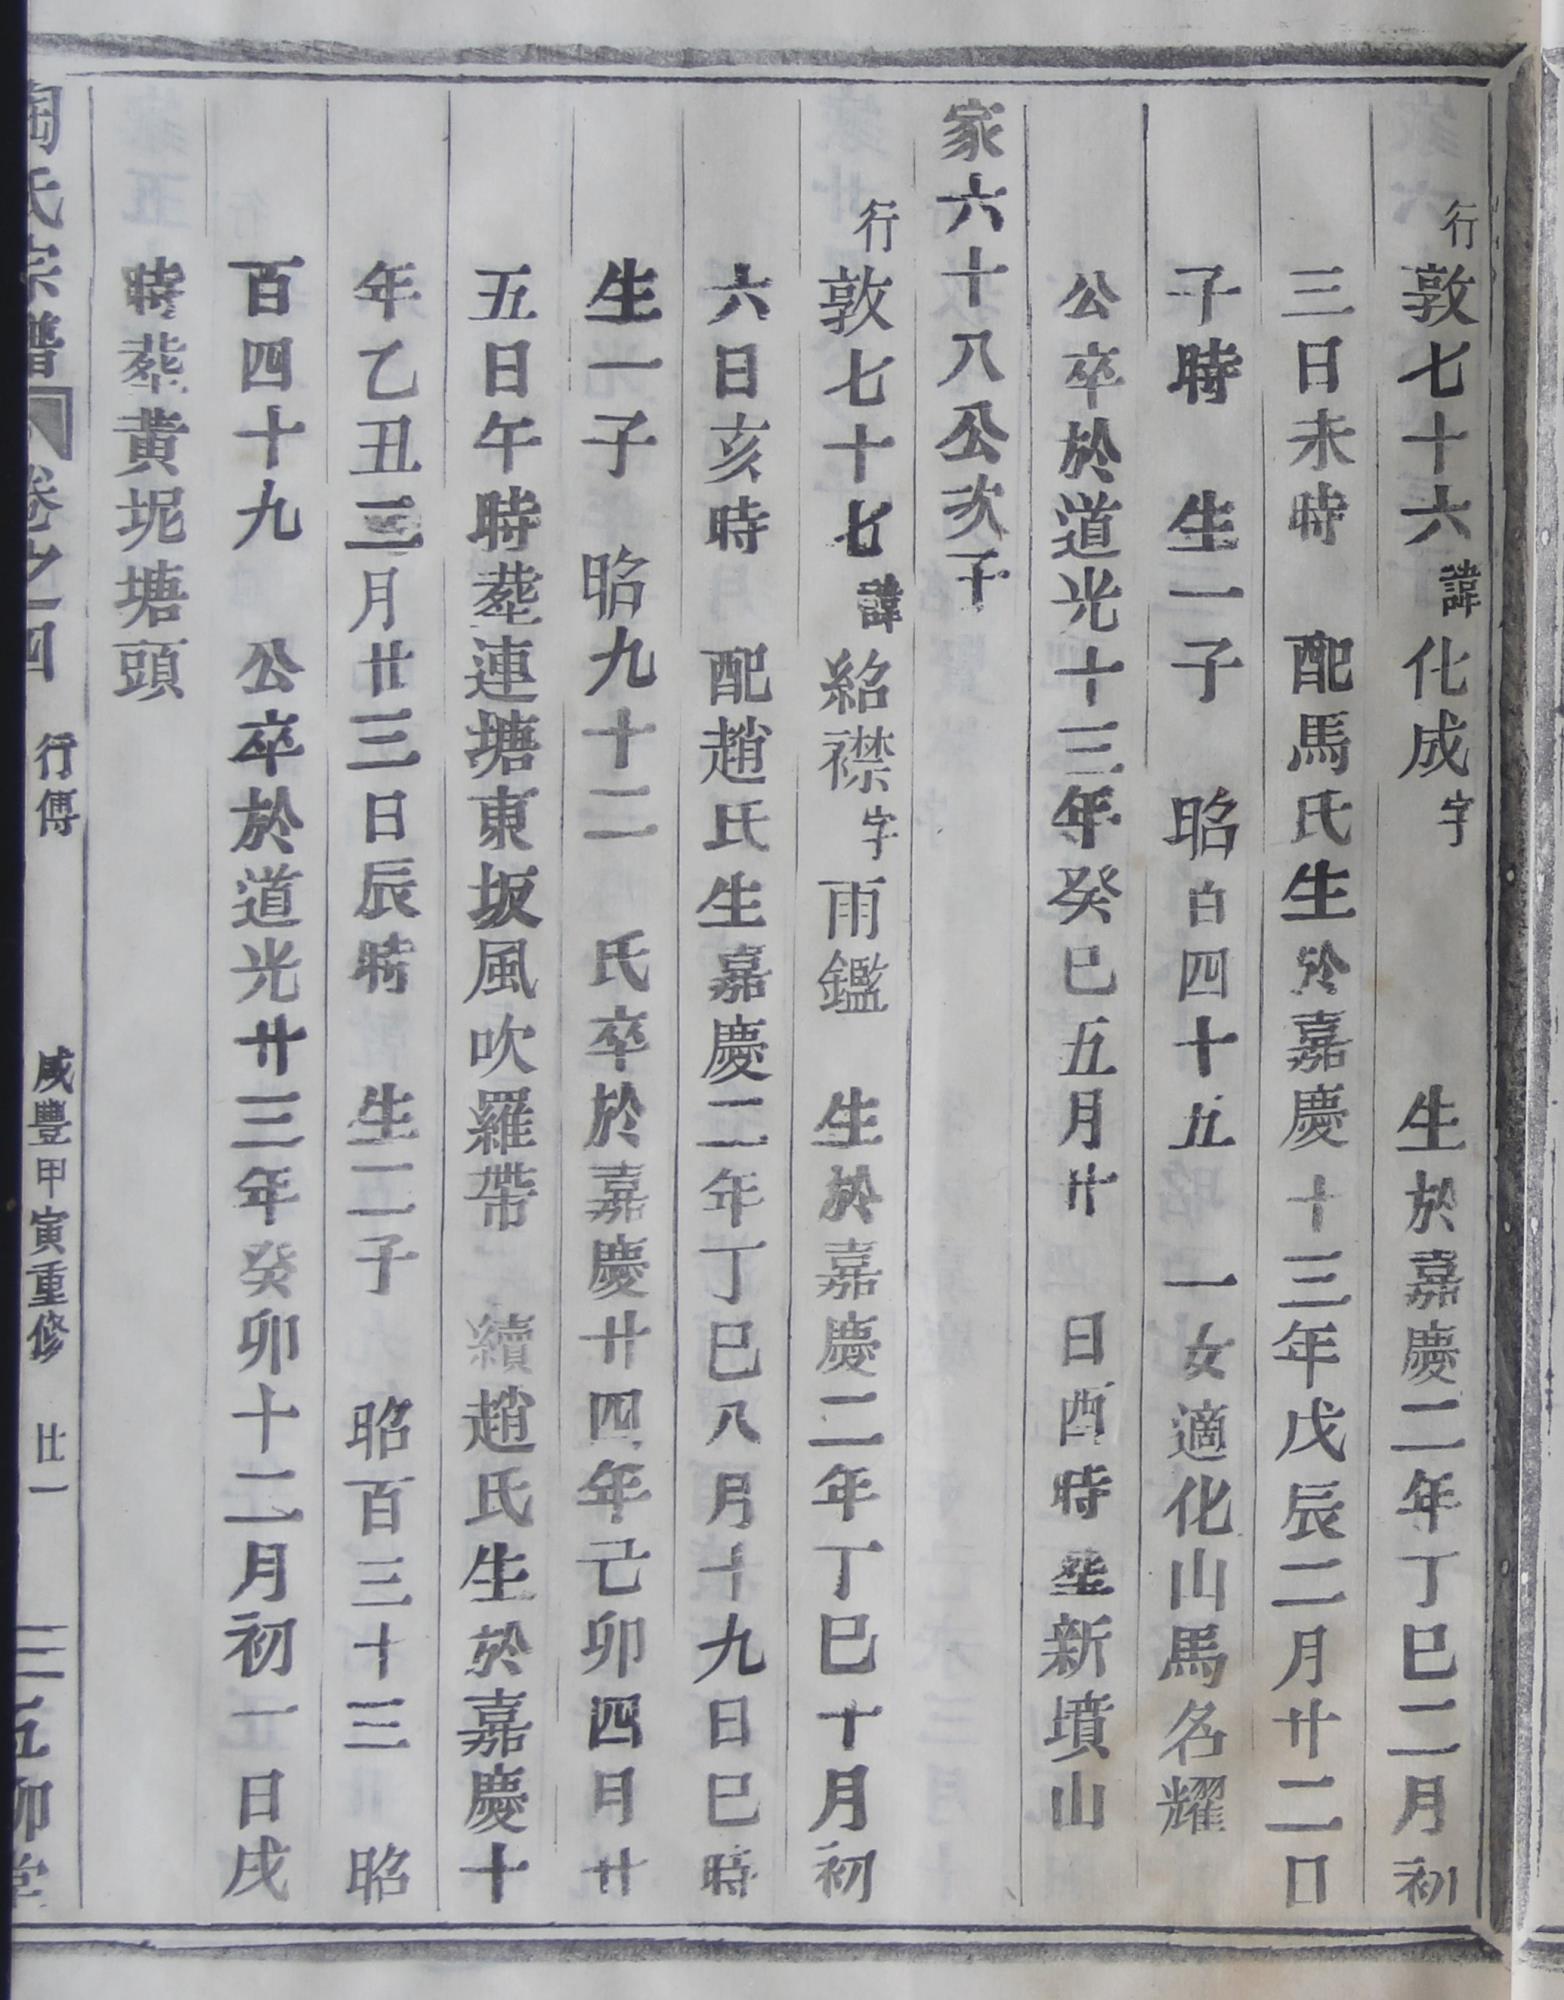 行敦七十六諱化成字　生於嘉慶二年丁巳二月初
三日未時　配馬氏生於嘉慶十三年戊辰二月廿二日
子時　生一子　昭百四十五　一女適化山馬名耀
公卒於道光十三年癸巳五月廿　日酉時塟新墳山
家六十八公次子
行敦七十七諱紹襟字雨鑑　生於嘉慶二年丁巳十月初
六日亥時　配趙氏生嘉慶二年丁巳八月十九日巳時
生一子　昭九十二　氏卒於嘉慶廿四年己卯四月廿
五日午時塟連塘東坂風吹羅帶　續趙氏生於嘉慶十
年乙丑三月廿三日辰時　生二子　昭百三十三　昭
百四十九　公卒於道光廿三年癸卯十二月初一日戌
時塟黄坭塘頭
陶氏宗譜　卷之四　行傅　咸豐甲寅重修　廿一　五柳堂